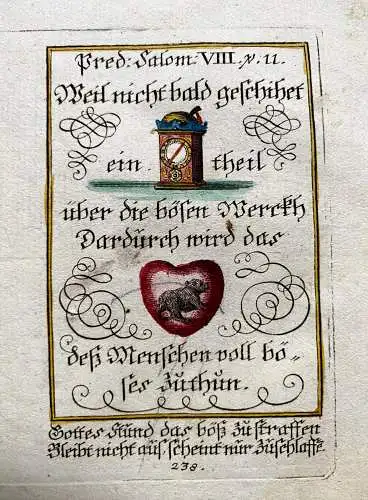 Pred: Salom: VIII. v. 11.
Weil nicht bald geschihet
ein theil
über die bösen Werckh
Dardurch wird das
deß Menschen voll bö-
ses Zuthun.
Gottes Stund das böß zu straffen
Bleibt nicht auß, scheint nur zuschlaffē.
238.